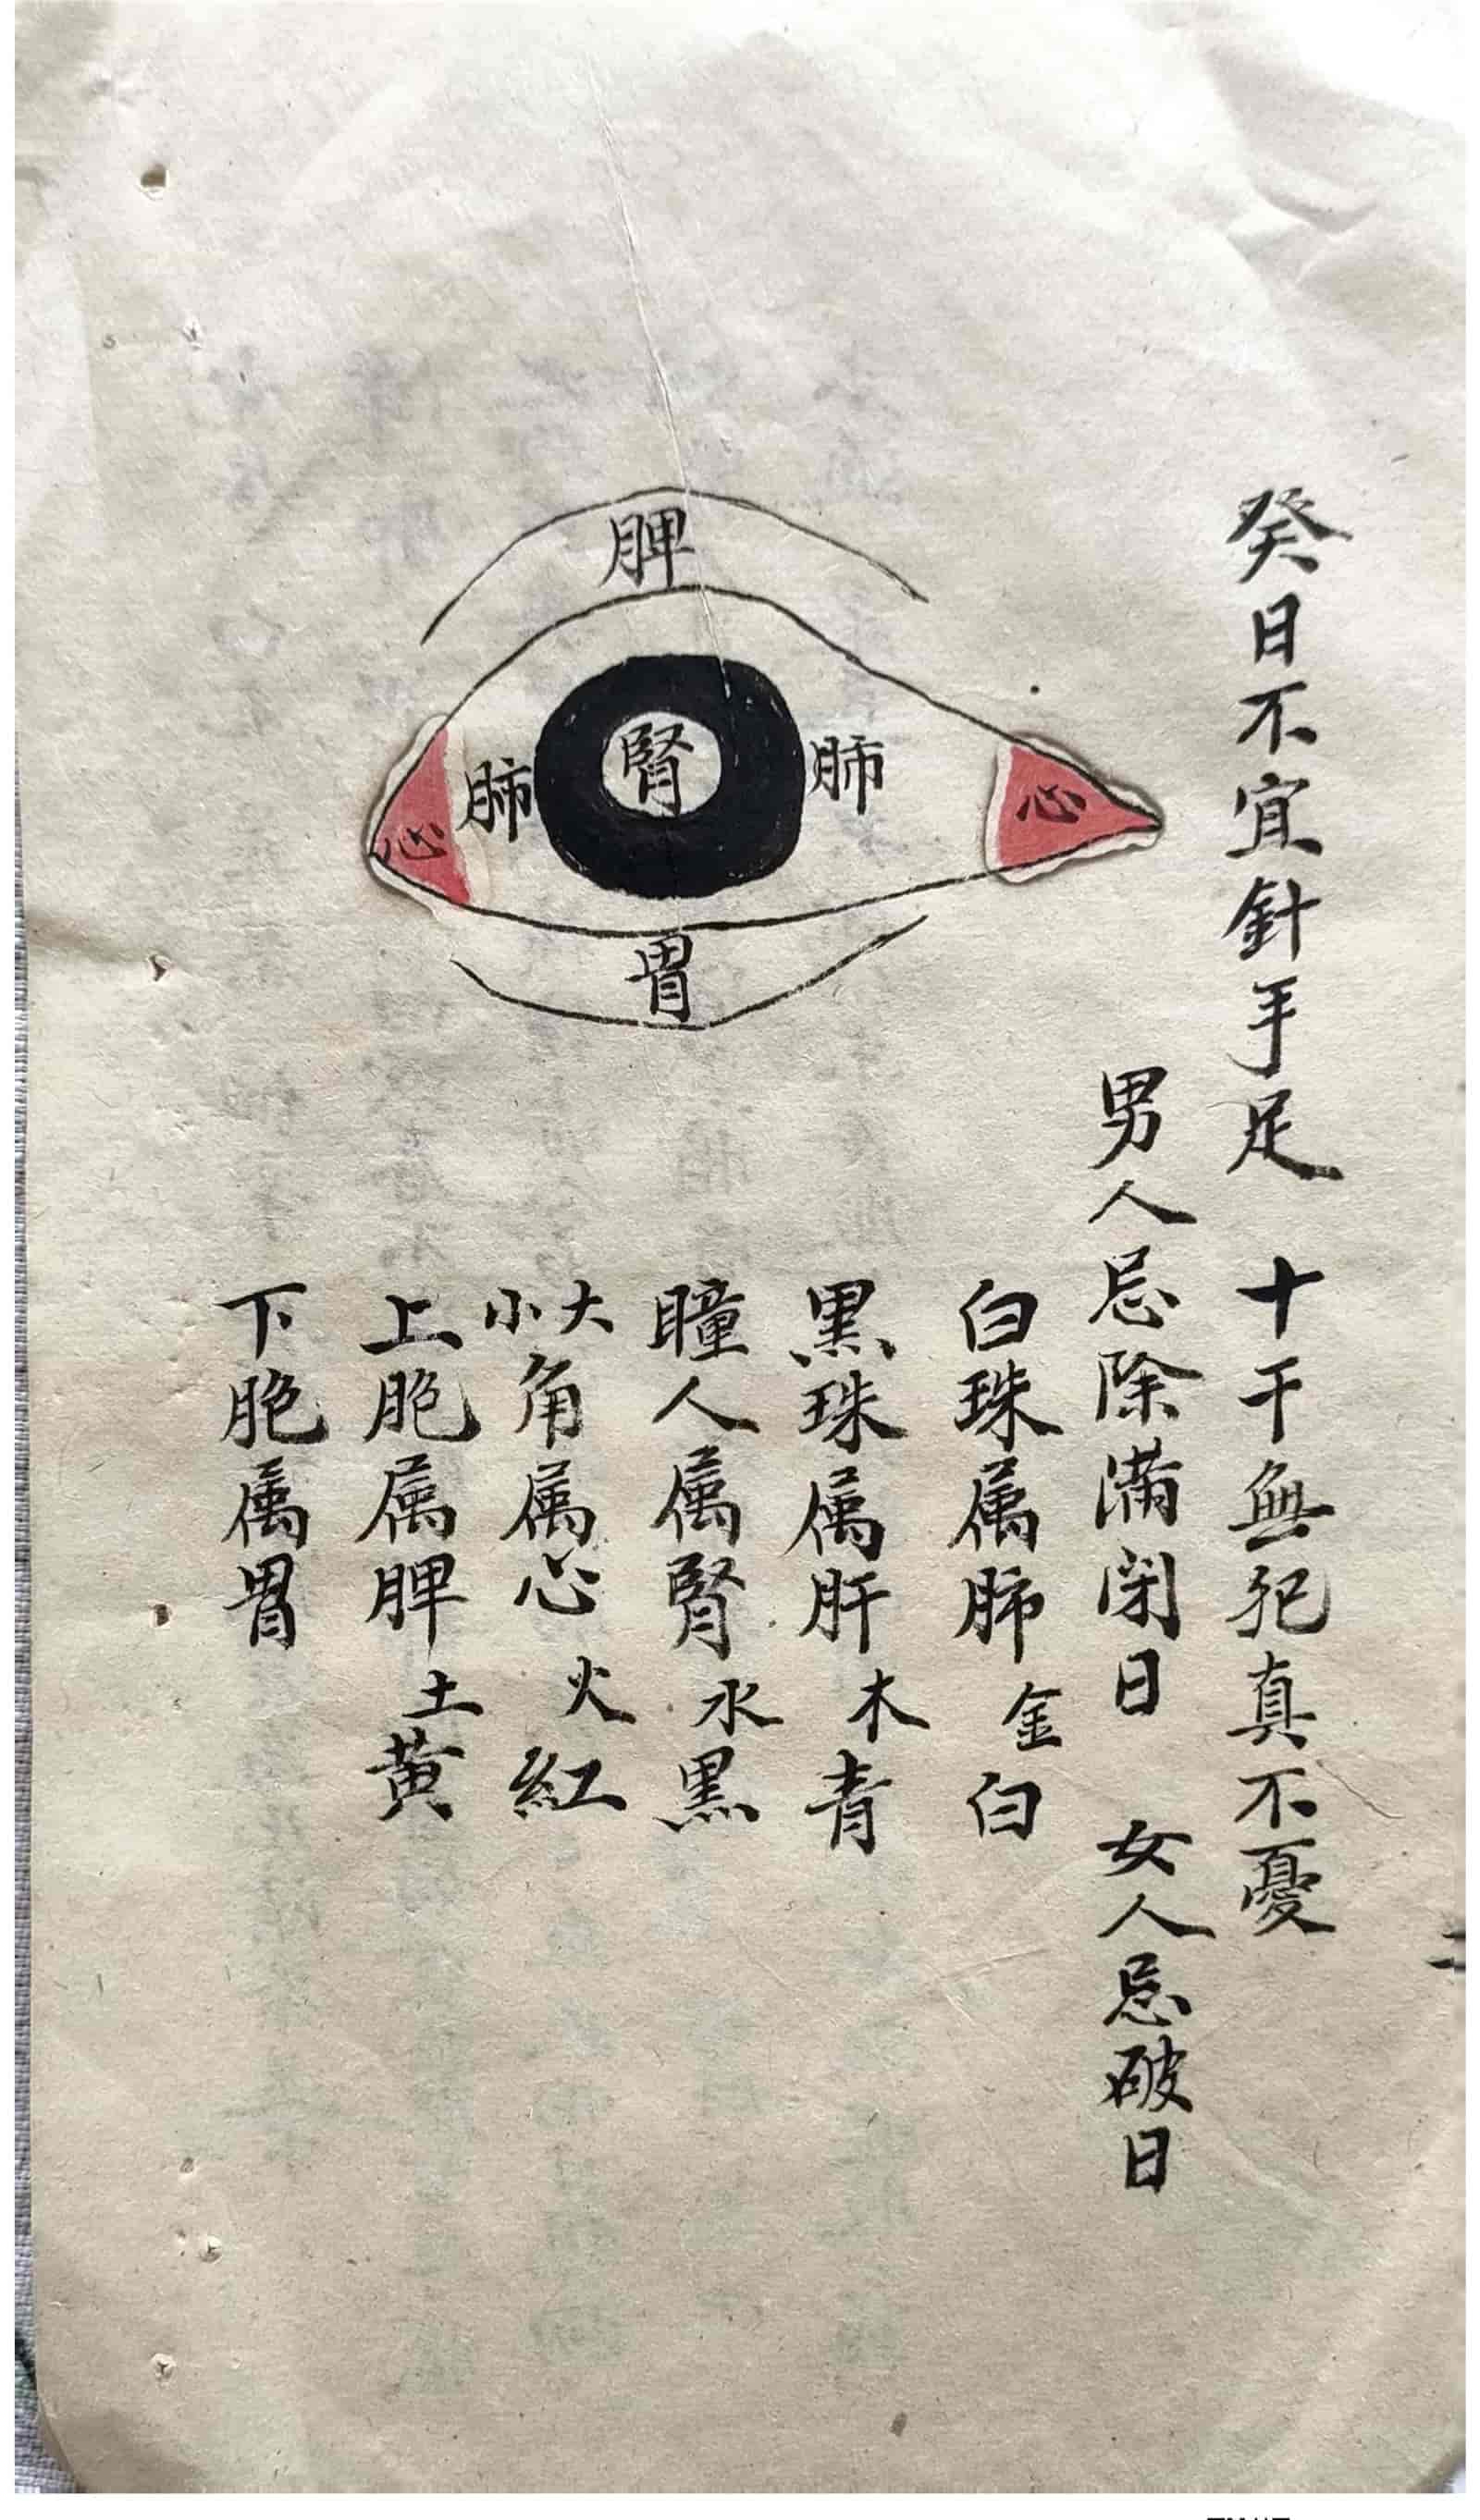 癸日不宜針手足 十干無犯真不憂
男人忌除滿閉日 女人忌破日
白珠属肺 金白
黑珠属肝 木青
瞳人属腎 水黑
大小角属心 火紅
上胞属脾 土黄
下胞属胃
脾
心 肺 腎 肺 心
胃